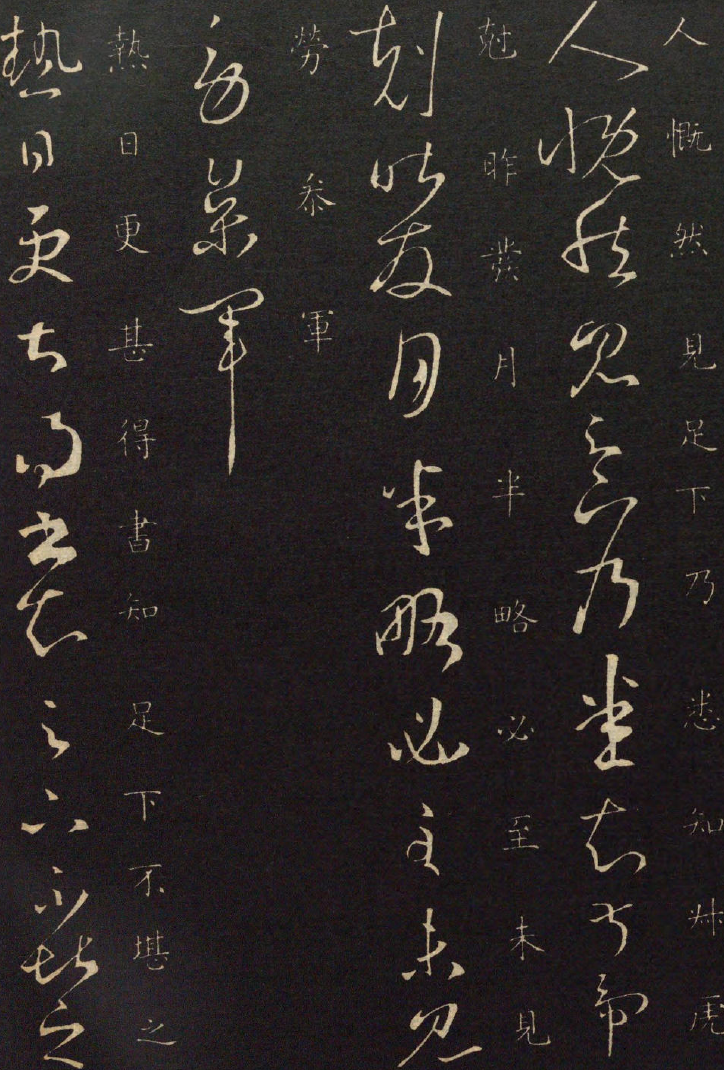 人慨然見足下乃悉知叔虎
人慨然見足下乃悉知叔虎
尅昨發月半略必至未見
剋昨發月半略必至未見
勞叅軍
勞叅軍
熱日更甚得書知足下不堪之
熱日更甚得書知足下不堪之